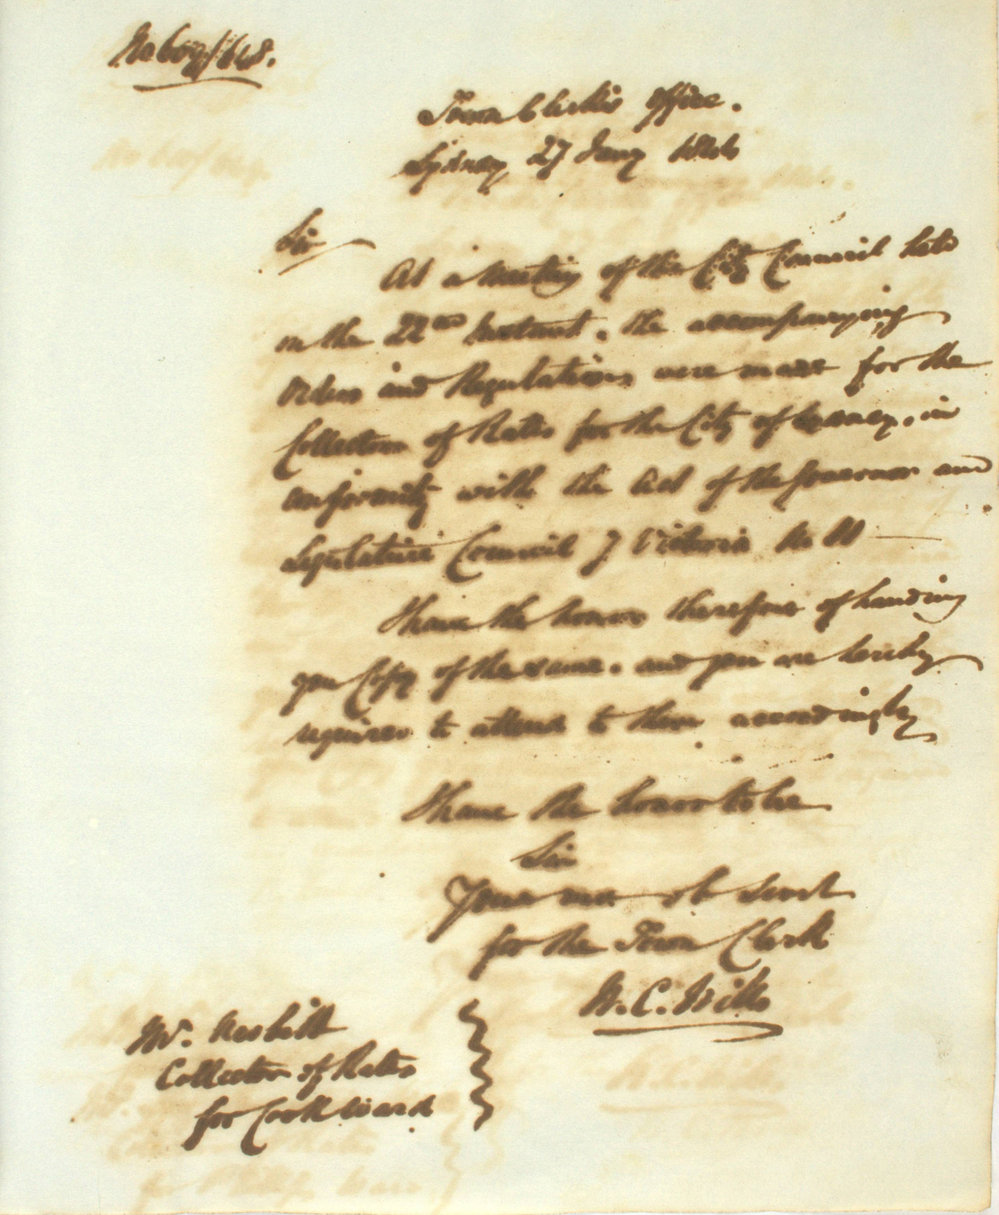 Town Clerks Office.
Sydney 27 Jany 1846
Sir
At a Meeting of the City Council held
on the 22nd Instant, the accompanying
Orders and Regulations were made for the
Collection of Rates for the City of Sydney, in
conformity with the Act of the Governor and
Legislative Council 7 Victoria
I have the honor therefore of handing
you Copy of the same. and you are hereby
required to attend to them accordingly
I have the honor to be
Sir
Your most ob Servt
for the Town Clerk
W. C. Wills
Mr. Nesbitt
Collector of Rates
for Cook Ward